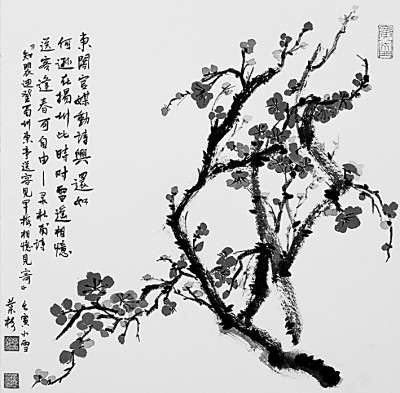 東閣官楳動詩興還如
何遜在揚州此時對雪遥相憶
送客逢春可自由—录杜甫詩
《和裴迪登蜀州東亭送客見早梅相憶見寄》壬寅小雪